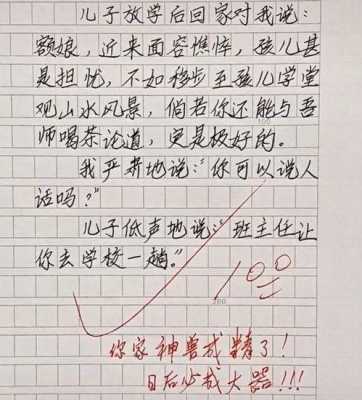 儿子放学后回家对我说：
额娘，近来面容憔悴，孩儿甚
是担忧，不如移步至孩儿学堂
观山水风景，倘若你还能与吾
师喝茶论道，更是极好的。
我严肃地说：“你可以说人
话吗？”
儿子低声地说：“班主任让
你去学校一趟。”
100
200
你家神兽成精了！
日后必成大器！！！